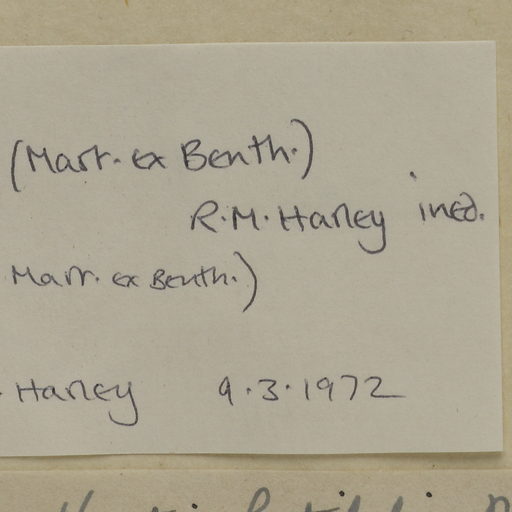 (Mart. ex Benth.)
R.M. Harley ined.
Mart. ex Benth.)
. Harley 9.3.1972